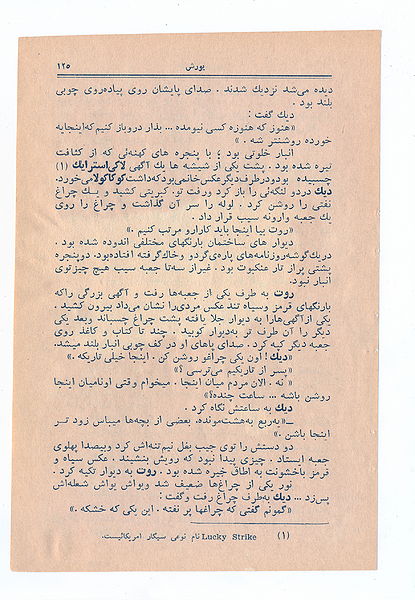 یورش
۱۲۵
دیده می‌شد نزدیك شدند . صدای پایشان روی پیاده‌روی چوبی
بلند بود .
دیك گفت :
«هنوز که هنوزه کسی نیومده ... بذار دروباز کنیم که‌اینجا‌یه
خورده روشنتر شه . »
انبار خلوتی بود ؛ با پنجره های کهنه‌ئی که از کثافت
تیره شده بود . پشت یکی از شیشه ها یك آگهی لاکی‌استرایك (۱)
چسبیده بود‌و‌در‌طرف‌دیگر‌عکس‌خانمی‌بود‌که‌داشت‌کوکاکولا‌می‌خورد.
دیك در‌دو لنگه‌ئی را باز کرد ورفت تو. کبریتی کشید و یك چراغ
نفتی را روشن کرد . لوله را سر آن گذاشت و چراغ را روی
یك جعبه وارونه سیب قرار داد .
«روت بیا اینجا باید کارارو مرتب کنیم .»
دیوار های ساختمان بارنگهای مختلفی اندوده شده بود .
در‌یك‌گوشه‌روزنامه‌های پاره‌ی‌گردو وخاك‌گرفته افتاده‌بود. دوپنجره
پشتی پراز تار عنکبوت بود . غیراز سه‌تا جعبه سیب هیچ چیزتوی
انبار نبود.
روت به طرف یکی از جعبه‌ها رفت و آگهی بزرگی راکه
بارنگهای قرمز وسیاه تند عکس مردی‌را نشان می‌داد بیرون کشید .
یکی از‌آگهی‌هارا به دیوار جلا یافته پشت چراغ چسباند وبعد یکی
دیگر را آن طرف تر به‌دیوار کوبید . چند تا کتاب و کاغذ روی
جعبه دیگر کپه کرد . صدای پاهای او در کف‌چوبی انبار بلند میشد.
«دیك! اون یکی چراغو روشن کن . اینجا خیلی تاریکه .»
«پسر از تاریکیم می‌ترسی ؟»
« نه . الان مردم میان اینجا . میخوام وقتی اونامیان اینجا
روشن باشه ... ساعت چنده؟»
دیك به ساعتش نگاه کرد .
ــ«یه‌ربع به‌هشت‌مونده، بعضی از بچه‌ها میباس زود تــر
اینجا باشن .»
دو دستش را توی جیب بغل نیم‌تنه‌اش کرد وبیصدا پهلوی
جعبه ایستاد . چیزی پیدا نبود که رویش بنشیند . عکس سیاه و
قرمز باخشونت به اطاق خیره شده بود . روت به دیوار تکیه کرد .
نور یکی از چراغها ضعیف شد ویواش یواش شعله‌اش
پس‌زد ... دیك به‌طرف چراغ رفت وگفت :
«گمونم گفتی که چراغها پر نفته . این یکی که خشکه .»
(۱) Lucky Strike نام نوعی سیگار امریکائیست.